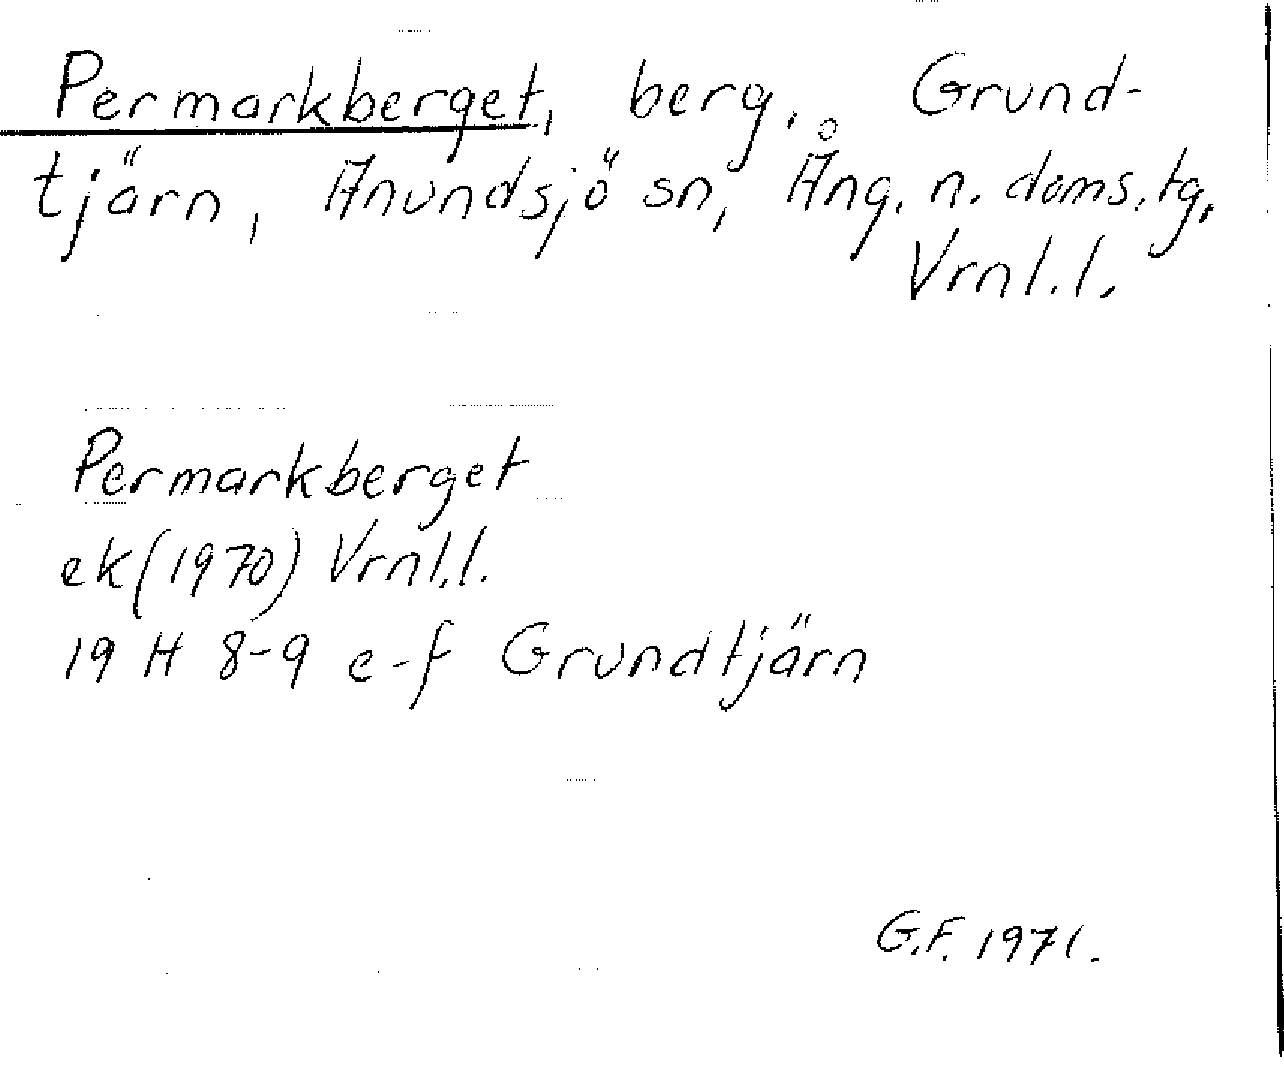 Permarkberget, berg. Grund-
tjärn, Anundsjö sn, Ång. n. doms.tg,
Vrnl.l.
Permarkberget
ek(1970) Vrnl.l.
19 H 8-9 e-f Grundtjärn
G.F. 1971.